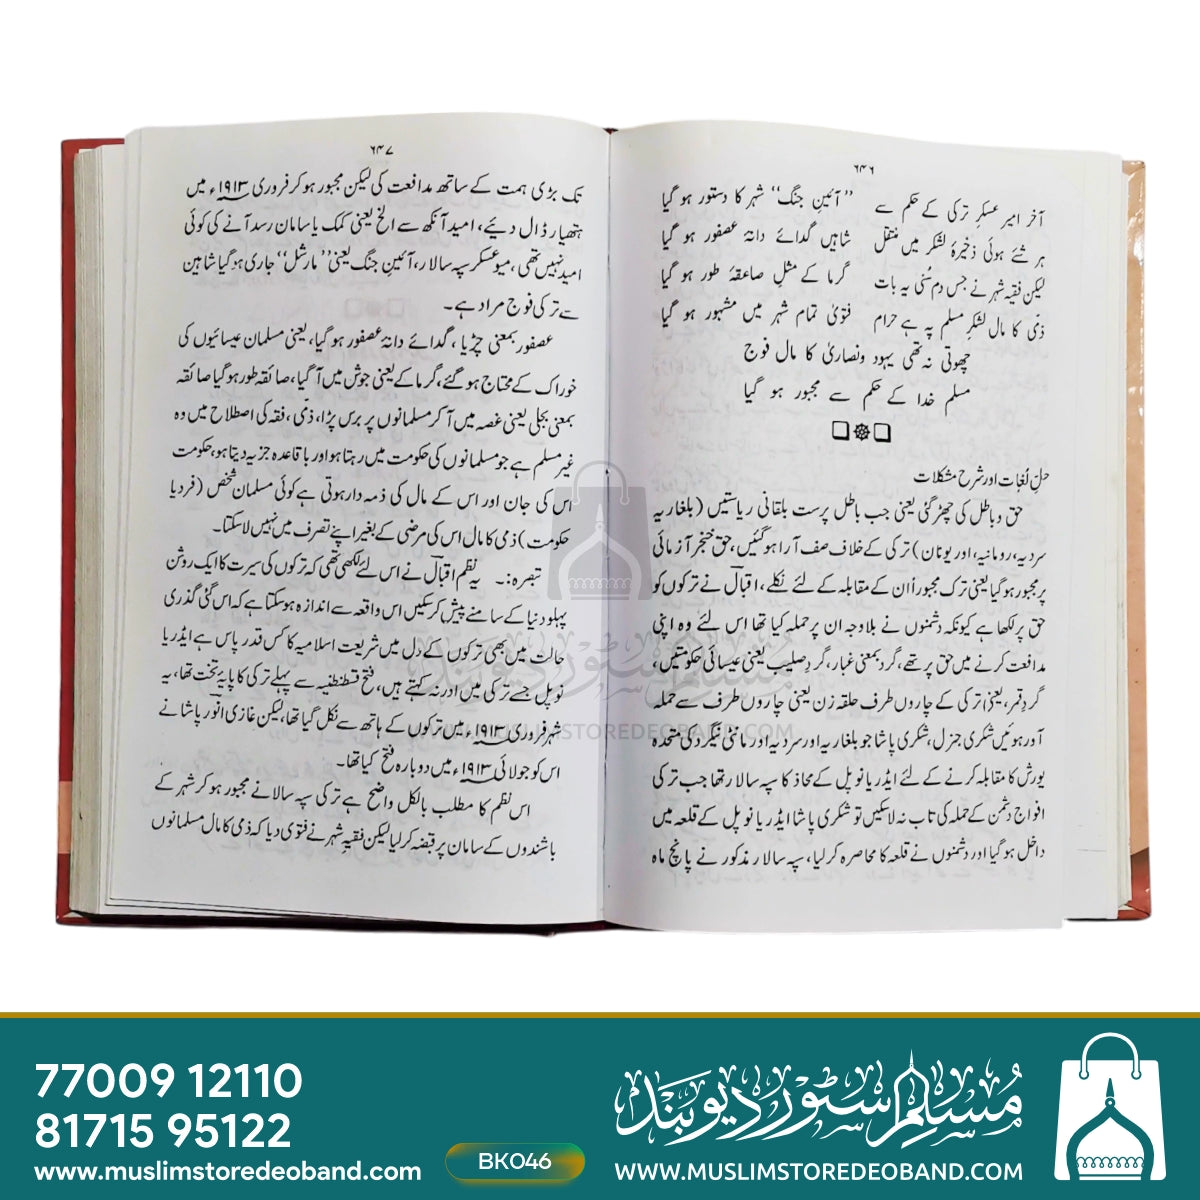 ۶۴۶
آخر امیر عسکر ترکی کے حکم سے ”آئینِ جنگ“ شہر کا دستور ہو گیا
ہر شئے ہوئی ذخیرۂ لشکر میں منتقل شاہیں گدائے دانۂ عصفور ہو گیا
لیکن فقیہ شہر نے جس دم سُنی یہ بات گرما کے مثلِ صاعقۂ طور ہو گیا
ذمّی کا مال لشکرِ مسلم پہ ہے حرام فتویٰ تمام شہر میں مشہور ہو گیا
چھوتی نہ تھی یہود و نصاریٰ کا مال فوج
مسلم خدا کے حکم سے مجبور ہو گیا
حلِ لُغات اور شرح مشکلات
حق و باطل کی چھڑ گئی یعنی جب باطل پرست بلقانی ریاستیں (بلغاریہ
سردیہ، رومانیہ، اور یونان) ترکی کے خلاف صف آرا ہو گئیں، حق خنجر آزمائی
پر مجبور ہو گیا یعنی ترک مجبوراً ان کے مقابلہ کے لئے نکلے، اقبال نے ترکوں کو
حق پر لکھا ہے کیونکہ دشمنوں نے بلاوجہ ان پر حملہ کیا تھا اس لئے وہ اپنی
مدافعت کرنے میں حق پر تھے، گرد بمعنی غبار، گردِ صلیب یعنی عیسائی حکومتیں،
گردِ قمر، یعنی ترکی کے چاروں طرف حلقہ زن یعنی چاروں طرف سے حملہ
آور ہوئیں شکری جنرل، شکری پاشا جو بلغاریہ اور سردیہ اور مانٹی نیگرو کی متحدہ
یورش کا مقابلہ کرنے کے لئے ایڈریانوپل کے محاذ کا سپہ سالار تھا جب ترکی
افواج دشمن کے حملہ کی تاب نہ لاسکیں تو شکری پاشا ایڈریانوپل کے قلعہ میں
داخل ہو گیا اور دشمنوں نے قلعہ کا محاصرہ کر لیا، سپہ سالار مذکور نے پانچ ماہ
۶۴۷
تک بڑی ہمت کے ساتھ مدافعت کی لیکن مجبور ہو کر فروری ۱۹۱۳ء میں
ہتھیار ڈال دیئے، امید آنکھ سے الخ یعنی کمک یا سامان رسد آنے کی کوئی
امید نہیں تھی، میر عسکر سپہ سالار، آئین جنگ یعنی ”مارشل“ جاری ہو گیا شاہین
سے ترکی فوج مراد ہے۔
عصفور بمعنی چڑیا، گدائے دانۂ عصفور ہو گیا، یعنی مسلمان عیسائیوں کی
خوراک کے محتاج ہو گئے، گرما کے یعنی جوش میں آ گیا، صائقہ طور ہو گیا صائقہ
بمعنی بجلی یعنی غصہ میں آ کر مسلمانوں پر برس پڑا، ذمّی، فقہ کی اصطلاح میں وہ
غیر مسلم ہے جو مسلمانوں کی حکومت میں رہتا ہو اور باقاعدہ جزیہ دیتا ہو، حکومت
اس کی جان اور اس کے مال کی ذمہ دار ہوتی ہے کوئی مسلمان شخص (فرد یا
حکومت) ذمی کا مال اس کی مرضی کے بغیر اپنے تصرف میں نہیں لا سکتا۔
تبصرہ:۔ یہ نظم اقبال نے اس لئے لکھی تھی کہ ترکوں کی سیرت کا ایک روشن
پہلو دنیا کے سامنے پیش کر سکیں اس واقعہ سے اندازہ ہو سکتا ہے کہ اس گئی گذری
حالت میں بھی ترکوں کے دل میں شریعت اسلامیہ کا کس قدر پاس ہے ایڈریا
نوپل جسے ترکی میں ادرنہ کہتے ہیں، فتح قسطنطنیہ سے پہلے ترکی کا پایۂ تخت تھا، یہ
شہر فروری ۱۹۱۳ء میں ترکوں کے ہاتھ سے نکل گیا تھا، لیکن غازی انور پاشا نے
اس کو جولائی ۱۹۱۳ء میں دوبارہ فتح کیا تھا۔
اس نظم کا مطلب بالکل واضح ہے ترکی سپہ سالار نے مجبور ہو کر شہر کے
باشندوں کے سامان پر قبضہ کر لیا لیکن فقیہ شہر نے فتویٰ دیا کہ ذمی کا مال مسلمانوں
مسلم سٹور دیوبند
WWW.MUSLIMSTOREDEOBAND.COM
77009 12110
81715 95122
www.muslimstoredeoband.com
BK046
مسلم سٹور دیوبند
WWW.MUSLIMSTOREDEOBAND.COM